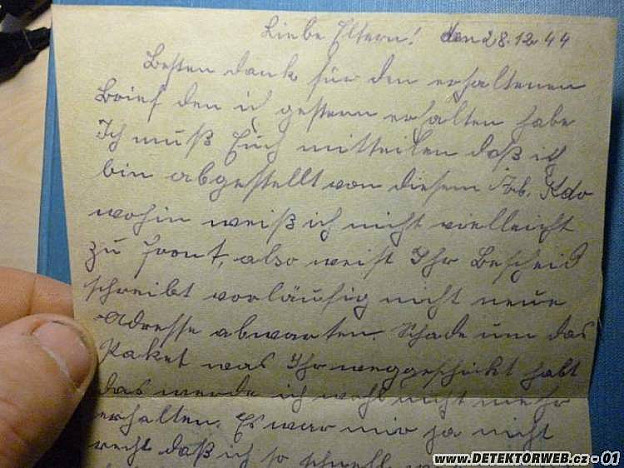 Liebe Eltern! den 28.12.44
Besten dank für den erhaltenen
Brief den ich gestern erhalten habe
Ich muß Euch mitteilen daß ich
bin abgestellt von diesem Kdo
wohin weiß ich nicht vielleicht
zu front, also weist Ihr Bescheid
schreibt vorläufig nicht neue
Adresse abwarten. Schade um das
Paket was Ihr weggeschickt habt
das werde ich wohl nicht mehr
erhalten. Es war mir ja nicht
recht daß ich so schnell
www.DETEKTORWEB.cz-01